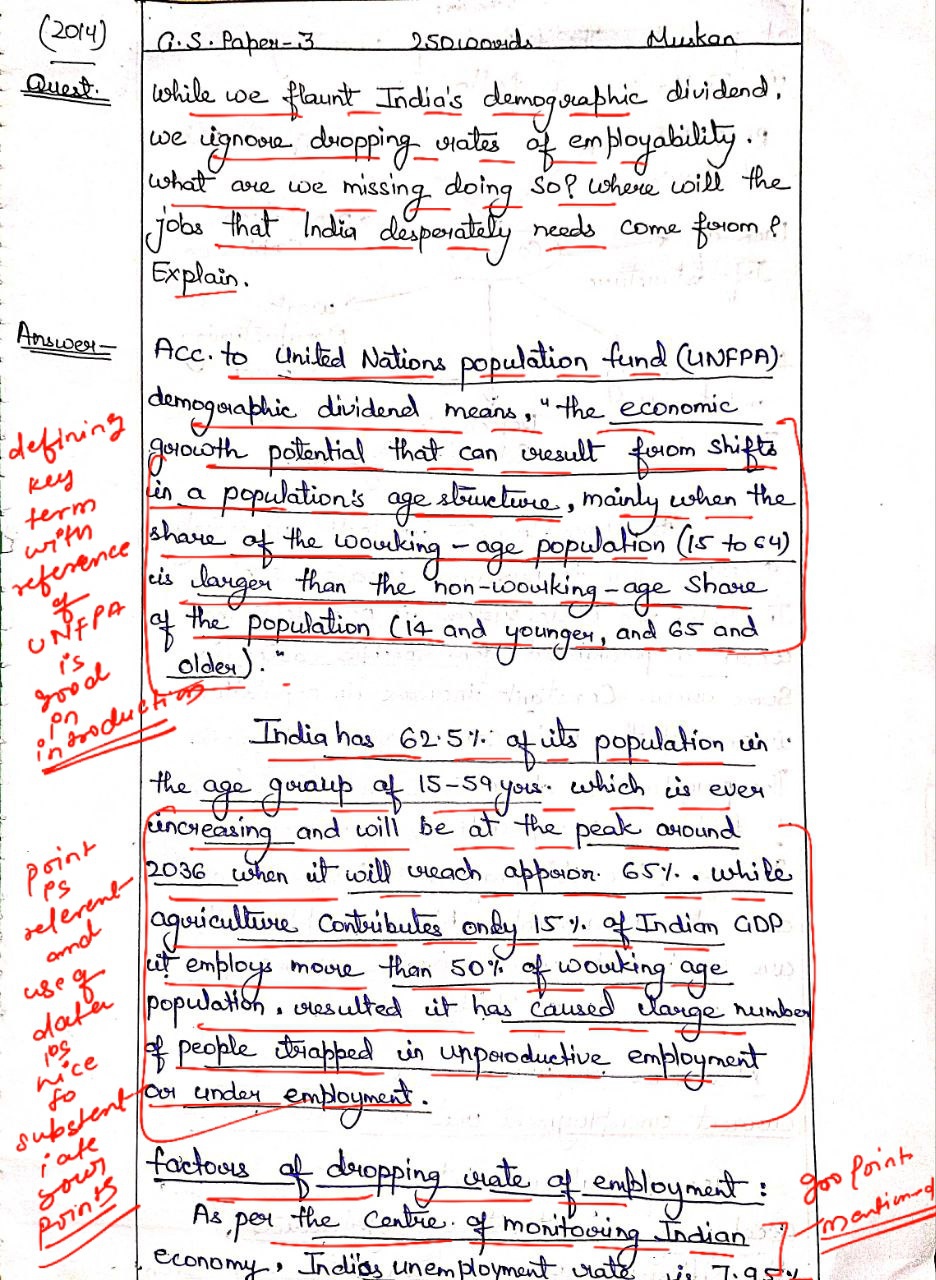 (2014)
G.S. Paper-3 250words Muskan
Quest.
while we flaunt India's demographic dividend,
we ignore dropping rates of employability.
what are we missing doing so? where will the
jobs that India desperately needs come from?
Explain.
Answer-
Acc. to United Nations population fund (UNFPA)
demographic dividend means, "the economic
growth potential that can result from shifts
in a population's age structure, mainly when the
share of the working-age population (15 to 64)
is larger than the non-working-age share
of the population (14 and younger, and 65 and
older)."
defining
key
term
with
reference
of
UNFPA
is
good
in
introduction
India has 62.5% of its population in
the age group of 15-59 yrs. which is ever
increasing and will be at the peak around
2036 when it will reach approx. 65%. while
agriculture contributes only 15% of Indian GDP
it employs more than 50% of working age
population. resulted it has caused large number
of people trapped in unproductive employment
or under employment.
point
is
relerent
and
use of
data
is
nice
to
substent
iate
your
points
factors of dropping rate of employment:
As per the centre of monitoring Indian
economy, India's unemployment rate is 7.95%
goo point
mentioned